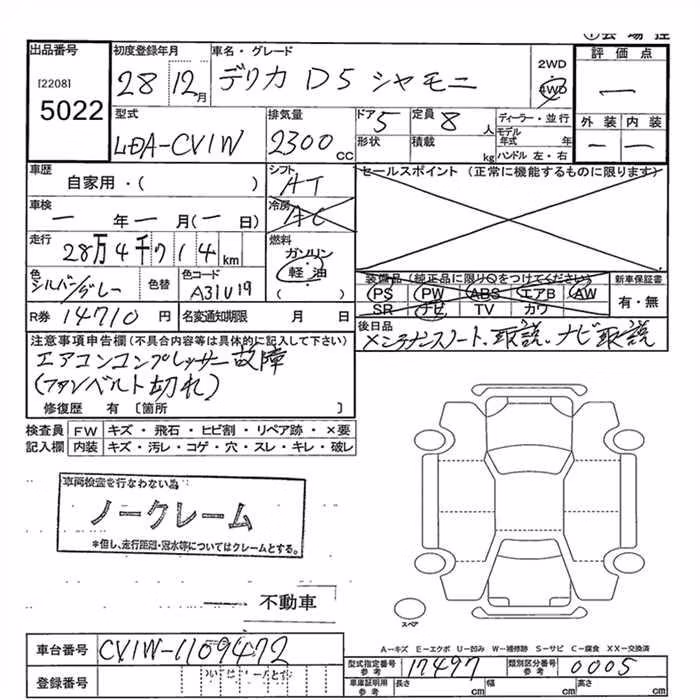 出品番号
[2208]
5022
初度登録年月
28 12月
車名・グレード
デリカ D5 シャモニー
2WD
4WD
評価点
一
外装 内装
一 一
型式
LDA-CV1W
排気量
2300 CC
ドア 5
形状
定員 8 人
積載 kg
ディーラー・並行
モデル年式 年
ハンドル 左・右
車歴
自家用・( )
シフト
AT
セールスポイント (正常に機能するものに限ります)
車検
一 年 一 月(一 日)
冷房
AC
走行
28万4千714km
燃料
ガソリン
軽油
( )
色
シルバー/グレー
色替
色コード
A31U19
装備品(純正品に限り○をつけてください)
PS PW ABS エアB AW
SR ナビ TV カワ
新車保証書
有・無
R券 14710円
名変通知期限 月 日
後日品
メンテナンスノート、取説、ナビ取説
注意事項申告欄(不具合内容等は具体的に記入して下さい)
エアコンコンプレッサー故障
(ファンベルト切れ)
修復歴 有 〔箇所 〕
検査員 FW キズ・飛石・ヒビ割・リペア跡・×要
記入欄 内装 キズ・汚レ・コゲ・穴・スレ・キレ・破レ
車両検査を行なわない為
ノークレーム
*但し、走行距離・冠水等についてはクレームとする。
不動車
スペア
A-キズ E-エクボ U-凹み W-補修跡 S-サビ C-腐食 XX-交換済
車台番号
CV1W-1109472
型式指定番号 参考
17497
類別区分番号 参考
0005
登録番号
車庫証明用 参考
長さ cm
幅 cm
高さ cm